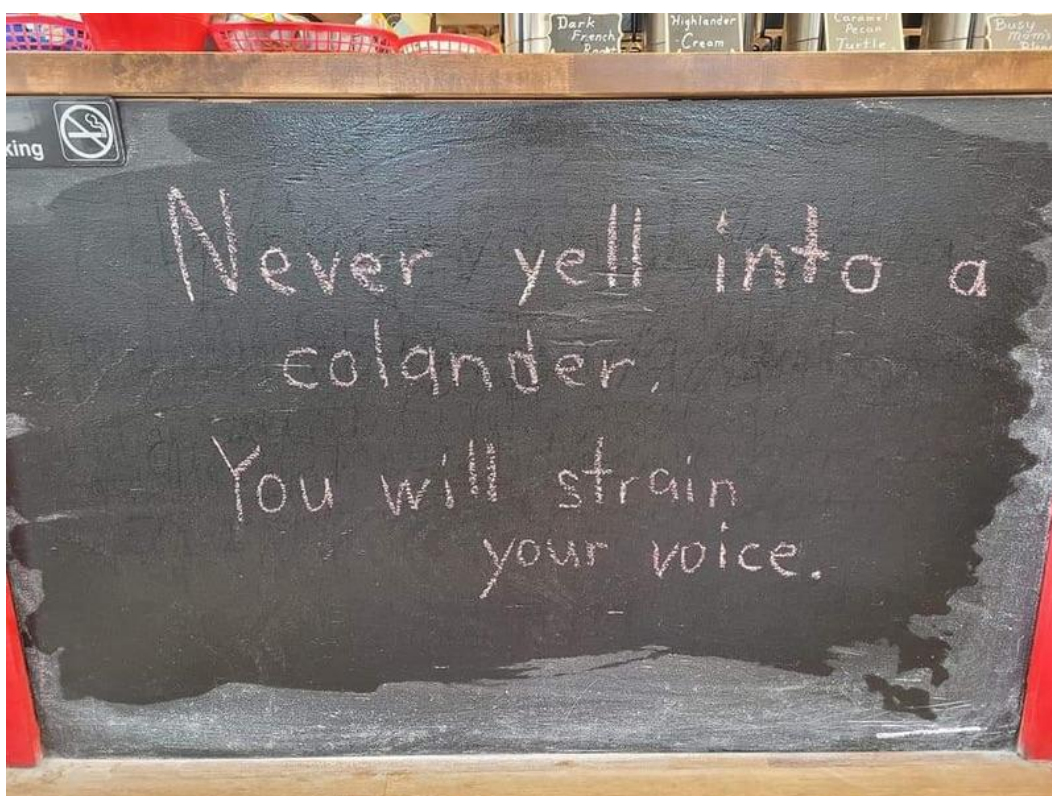 Dark
French
Roast
Highlander
Cream
Caramel
Pecan
Turtle
Busy
Mom's
king
Never yell into a
colander.
You will strain
your voice.